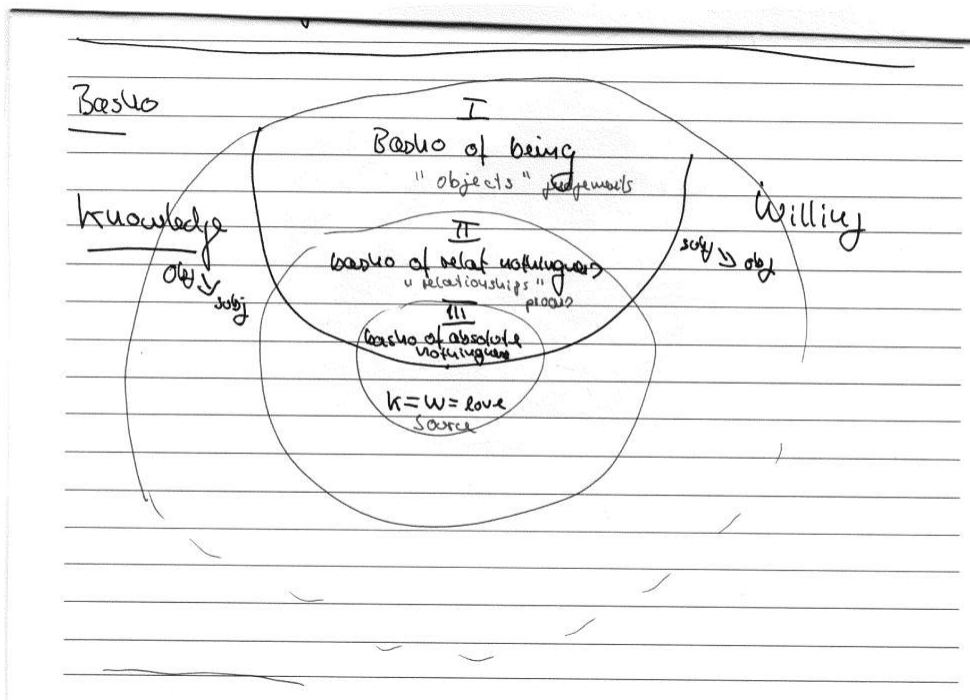 Basho
I
Basho of being
"objects" judgements
Knowledge
obj → subj
Willing
subj → obj
II
basho of relat nothingness
"relationships"
process
III
basho of absolute
nothingness
K = W = love
Source